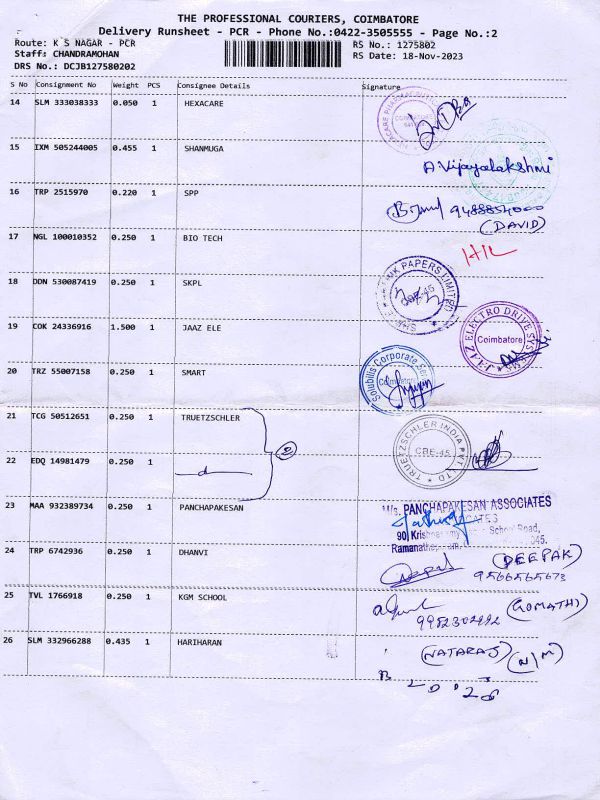 THE PROFESSIONAL COURIERS, COIMBATORE
Delivery Runsheet - PCR - Phone No.:0422-3505555 - Page No.:2
Route: K S NAGAR - PCR
RS No.: 1275802
Staff: CHANDRAMOHAN
RS Date: 18-Nov-2023
DRS No.: DCJB127580202
S No Consignment No Weight PCS Consignee Details Signature
14 SLM 333038333 0.050 1 HEXACARE
15 IXM 505244005 0.455 1 SHANMUGA
A.Vijayalakshmi
16 TRP 2515970 0.220 1 SPP
(DAVID)
17 NGL 100010352 0.250 1 BIO TECH
18 DDN 530087419 0.250 1 SKPL
PAPERS LIMITED
CBE-45
19 COK 24336916 1.500 1 JAAZ ELE
JAAZ ELECTRO DRIVE SYSTEMS
Coimbatore
20 TRZ 55007158 0.250 1 SMART
Solubilis Corporate Ser
Coimbatore
21 TCG 50512651 0.250 1 TRUETZSCHLER
2
TRUETZSCHLER INDIA PVT LTD
CBE-45
22 EDQ 14981479 0.250 1 d
23 MAA 932389734 0.250 1 PANCHAPAKESAN
M/s. PANCHAPAKESAN ASSOCIATES
90, School Road,
045.
24 TRP 6742936 0.250 1 DHANVI
(DEEPAK)
9566565673
25 TVL 1766918 0.250 1 KGM SCHOOL
(GOMATHI)
9952302492
26 SLM 332966288 0.435 1 HARIHARAN
(NATARAJ) (N/M)